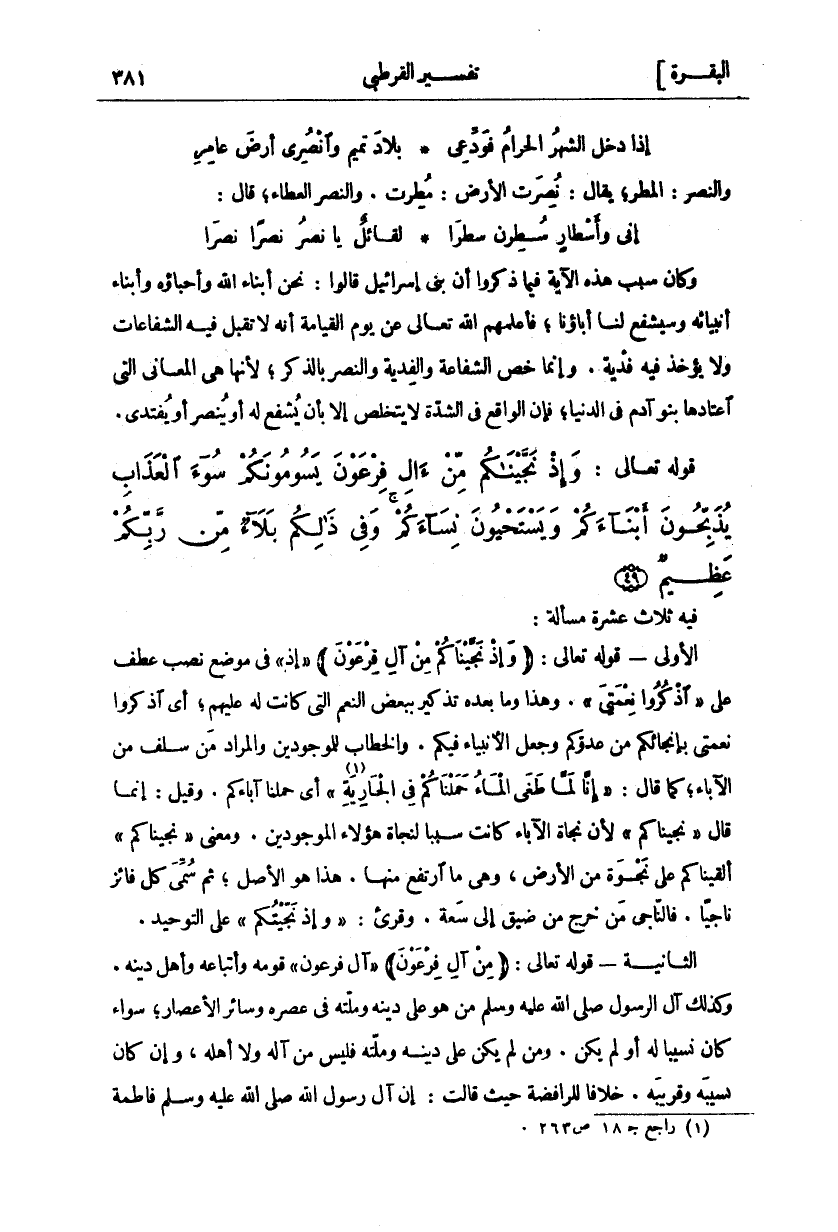 البقرة ] تفسير القرطبي ٣٨١
إذا دخل الشهرُ الحرامُ فَوَدِّعِى * بلادَ تميم وٱنْصُرِى أرضَ عامِرِ
والنصر : المطر؛ يقال : نُصِرَت الأرض : مُطِرت . والنصر العطاء؛ قال :
إنى وأَسْطارٍ سُطِرن سطرَا * لقائلٌ يا نصرُ نصرًا نصرَا
وكان سبب هذه الآية فيما ذكروا أن بنى إسرائيل قالوا : نحن أبناء الله وأحباؤه وأبناء
أنبيائه وسيشفع لنا أباؤنا ؛ فأعلمهم الله تعالى عن يوم القيامة أنه لا تقبل فيه الشفاعات
ولا يؤخذ فيه فدْية . وإنما خص الشفاعة والفدية والنصر بالذكر ؛ لأنها هى المعانى التى
ٱعتادها بنو آدم فى الدنيا؛ فإن الواقع فى الشدّة لا يتخلص إلا بأن يُشفع له أو يُنصر أو يُفتدى .
قوله تعالى : وَإِذْ نَجَّيْنَٰكُم مِّنْ ءَالِ فِرْعَوْنَ يَسُومُونَكُمْ سُوٓءَ ٱلْعَذَابِ
يُذَبِّحُونَ أَبْنَآءَكُمْ وَيَسْتَحْيُونَ نِسَآءَكُمْ ۚ وَفِى ذَٰلِكُم بَلَآءٌ مِّن رَّبِّكُمْ
عَظِيمٌ ٤٩
فيه ثلاث عشرة مسألة :
الأولى — قوله تعالى : ﴿ وَإِذْ نَجَّيْنَاكُمْ مِنْ آلِ فِرْعَوْنَ ﴾ «إذ» فى موضع نصب عطف
على « ٱذْكُرُوا نِعْمَتِىَ » . وهذا وما بعده تذكير ببعض النعم التى كانت له عليهم؛ أى ٱذكروا
نعمتى بإنجائكم من عدوّكم وجعل الأنبياء فيكم . والخطاب للموجودين والمراد مَن سلف من
الآباء؛ كما قال : « إِنَّا لَمَّا طَغَى الْمَاءُ حَمَلْنَاكُمْ فِى الْجَارِيَةِ (١) » أى حملنا آباءكم . وقيل : إنما
قال « نجيناكم » لأن نجاة الآباء كانت سببا لنجاة هؤلاء الموجودين . ومعنى « نجيناكم »
ألقيناكم على نَجْوَة من الأرض ، وهى ما ٱرتفع منها . هذا هو الأصل ؛ ثم سُمِّىَ كل فائز
ناجيًا . فالنّاجى مَن خرج من ضيق إلى سَعة . وقرئ : « وإذ نجّيْتُكم » على التوحيد .
الثانية — قوله تعالى : ﴿ مِنْ آلِ فِرْعَوْنَ ﴾ «آل فرعون» قومه وأتباعه وأهل دينه .
وكذلك آل الرسول صلى الله عليه وسلم من هو على دينه وملّته فى عصره وسائر الأعصار؛ سواء
كان نسيبا له أو لم يكن . ومن لم يكن على دينه وملّته فليس من آله ولا أهله ، وإن كان
نسيبَه وقريبَه . خلافا للرافضة حيث قالت : إن آل رسول الله صلى الله عليه وسلم فاطمة
(١) راجع جـ ١٨ ص٢٦٣ .